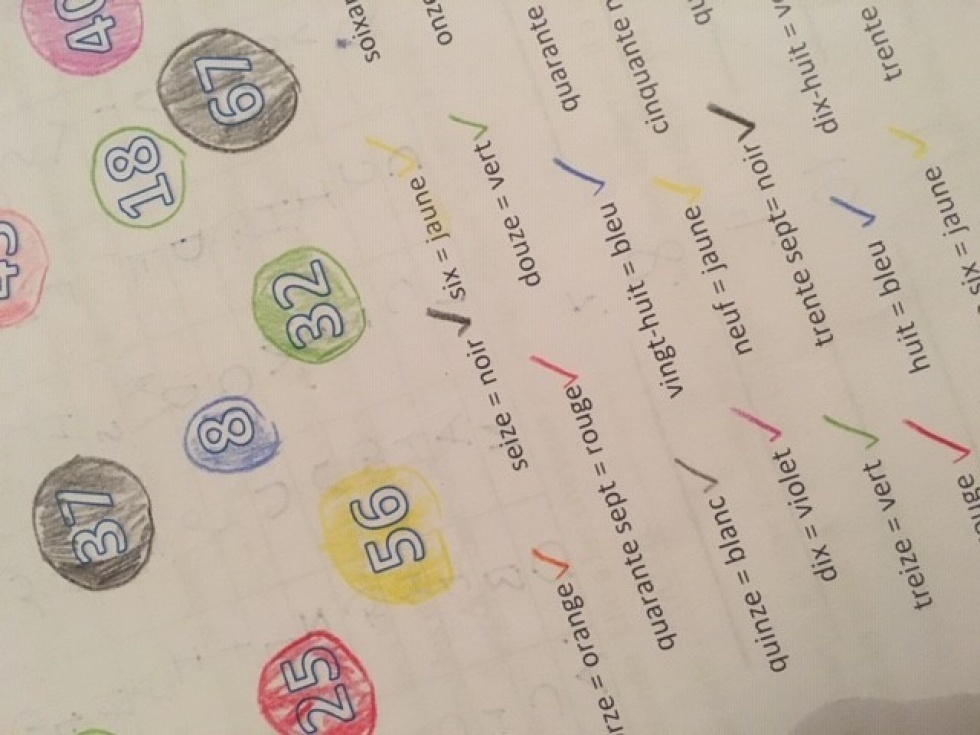 37
18
67
8
25
56
32
orange seize = noir six = jaune
quarante sept = rouge douze = vert onze
quinze = blanc vingt-huit = bleu quarante
dix = violet neuf = jaune cinquante
treize = vert trente sept= noir
huit = bleu dix-huit =
six = jaune trente